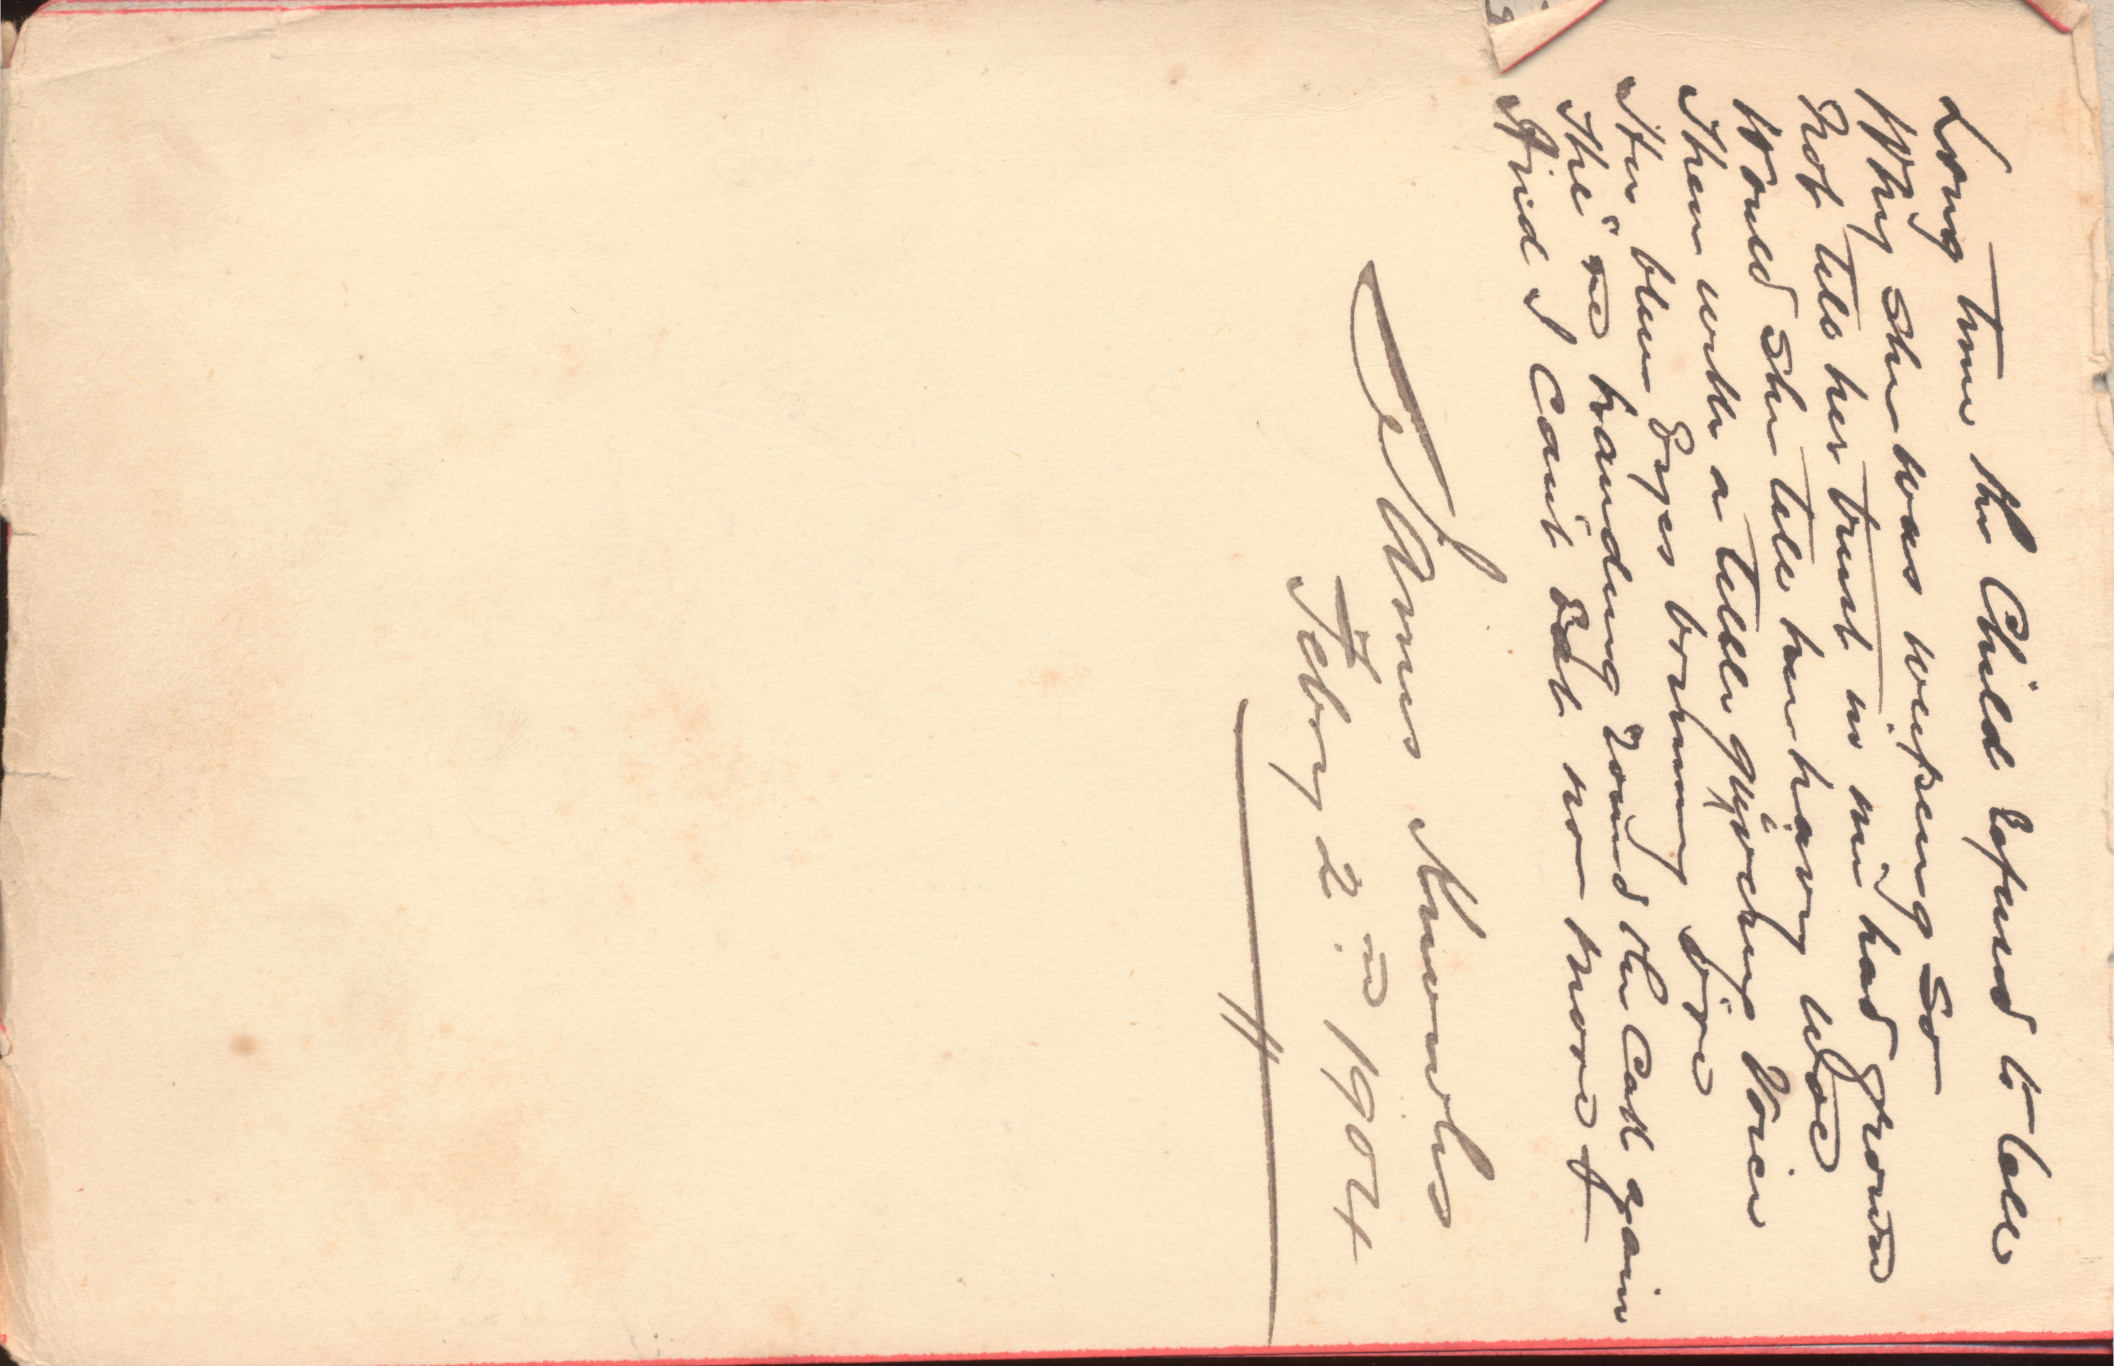 Long time the Child refused to tell
Why she was weeping so
Not till her trust in me had grown
Would she tell her heavy woe
Then with a tellen quivering Voice
Her blue Eyes brimming o'er
The're handing round the Cake again
And I can't Eat no more
James Knowles
Febry 2nd 1904